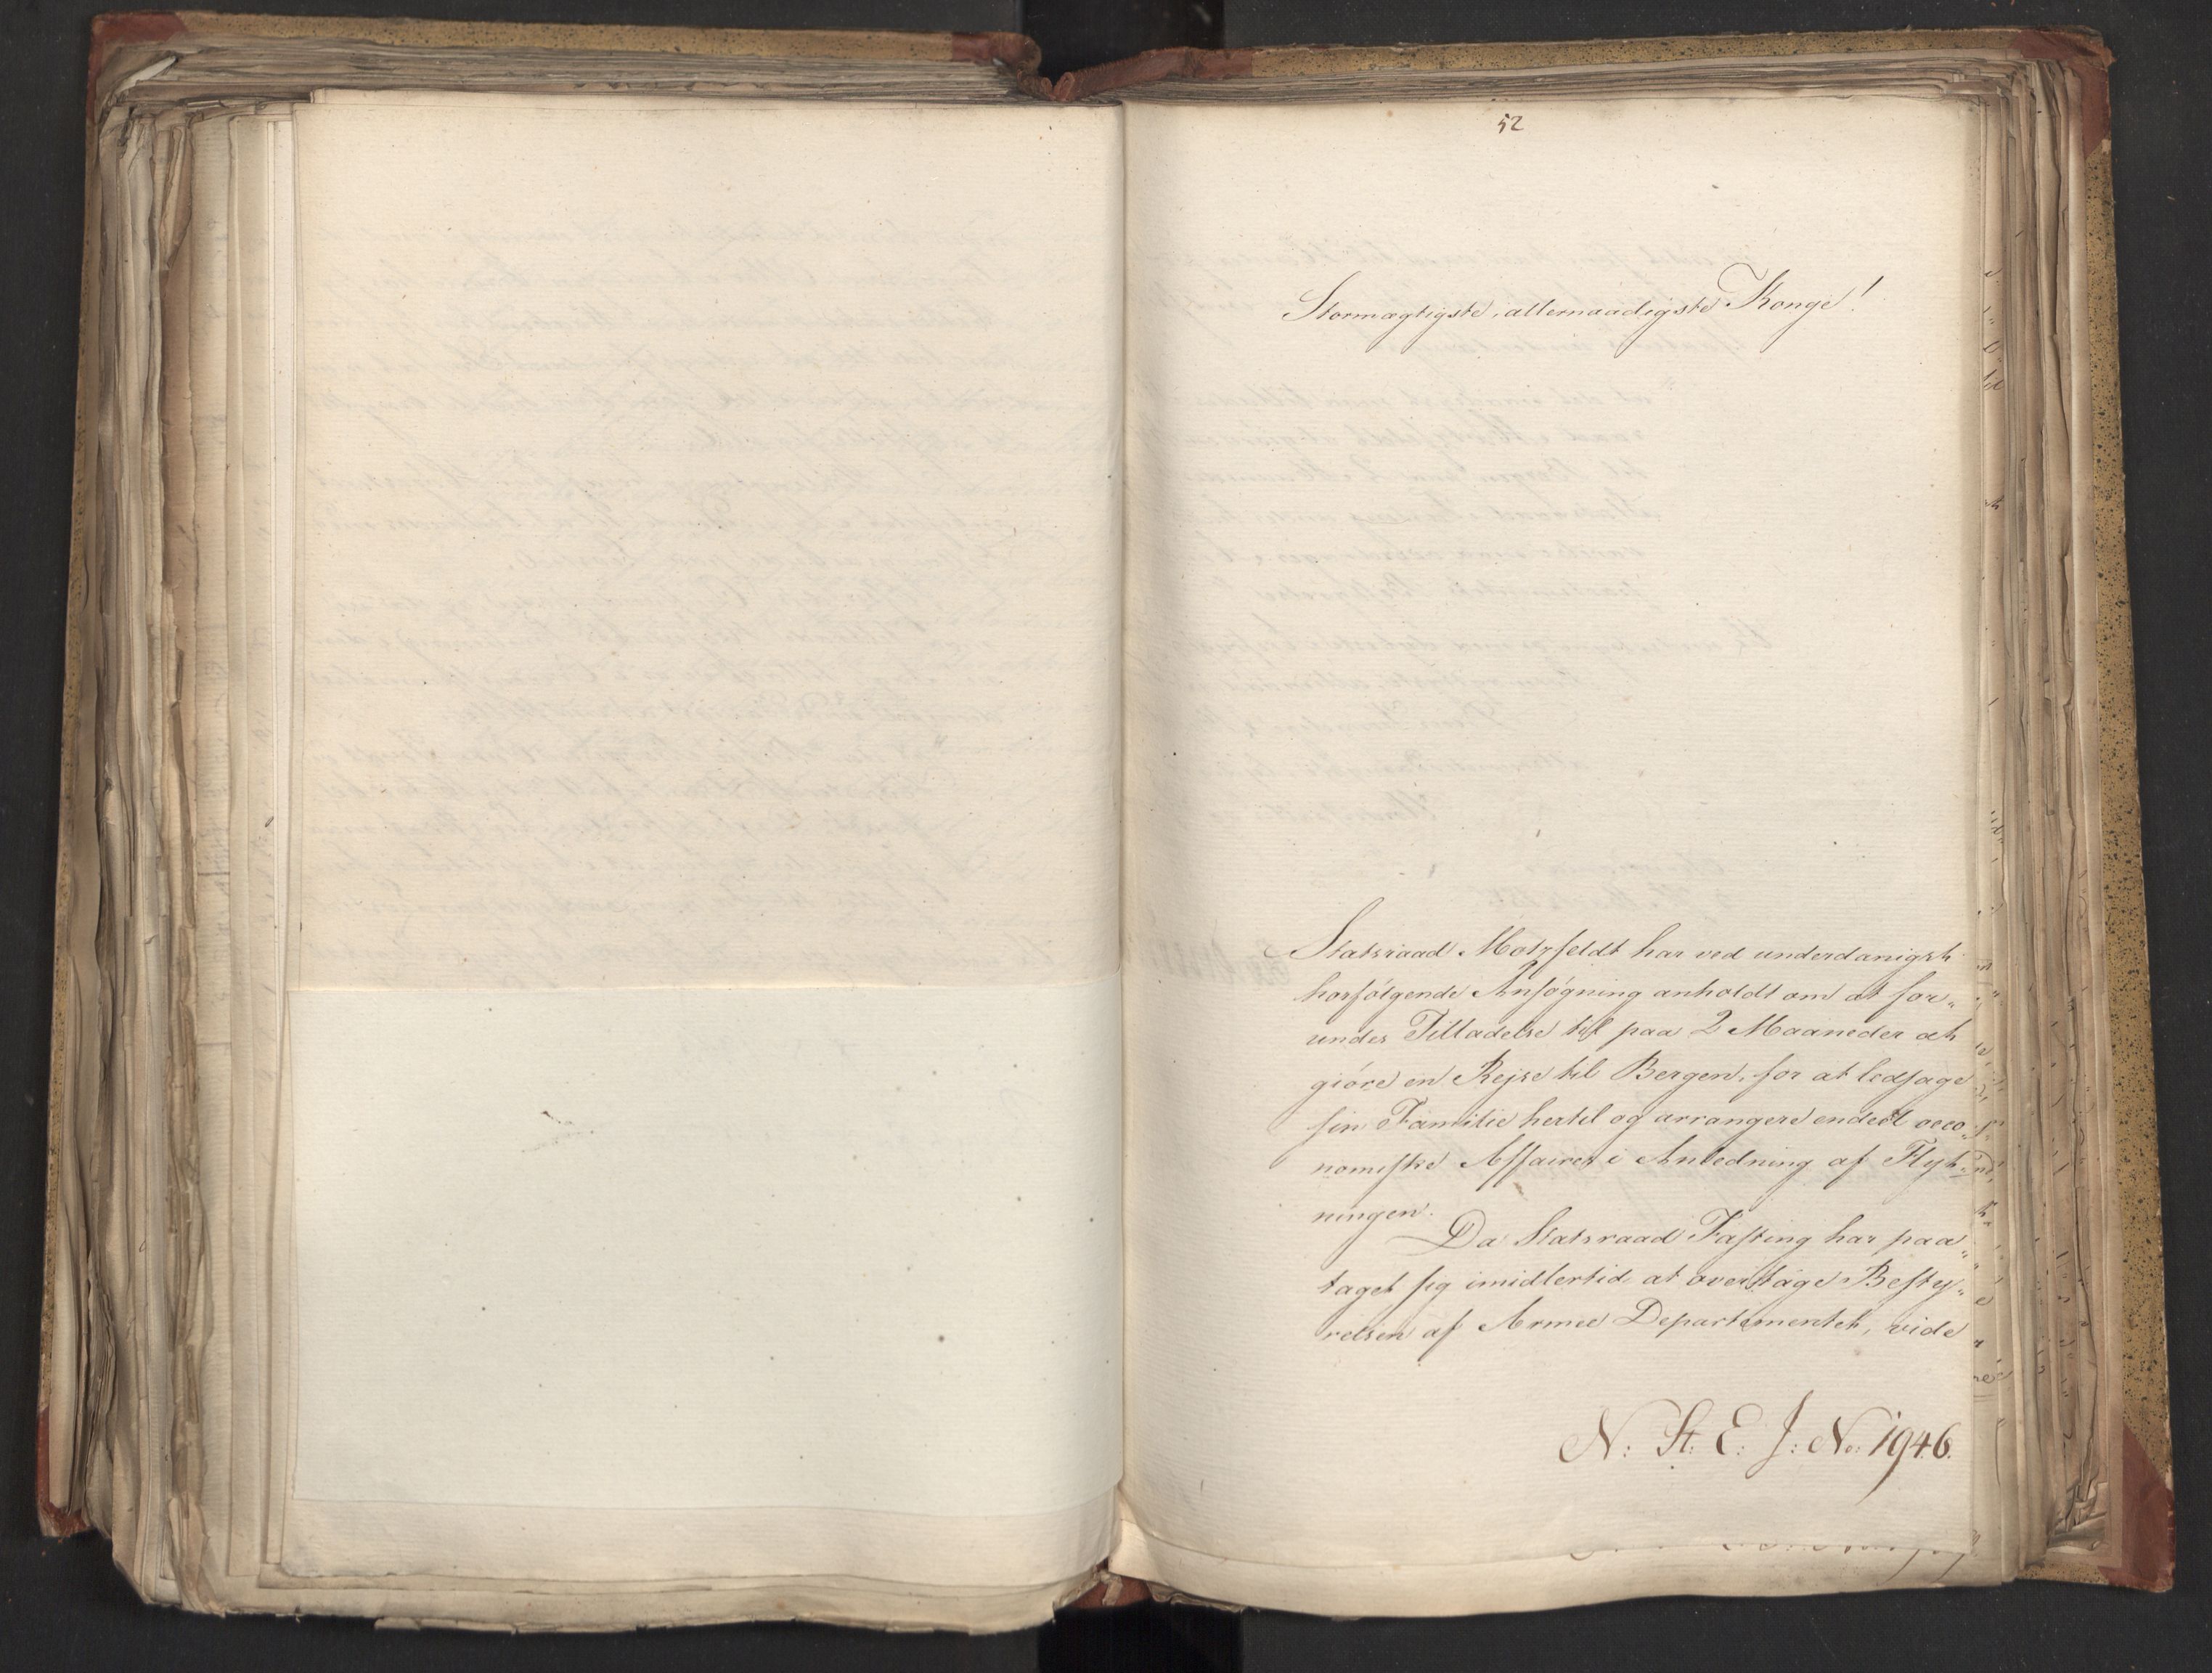 52
Stormægtigste, allernaadigste Konge!
Statsraad Motzfeldt har ved underdanigst
hosfølgende Ansøgning anholdt om at for„
undes Tilladelse til paa 2 Maaneder at
giöre en Rejse til Bergen, for at ledsage
sin Familie hertil og arrangere endeel oeco„
nomiske Affairer i Anledning af Flyt„
ningen.
Da Statsraad Fasting har paa„
taget sig imidlertid at overtage Besty„
relsen af Armee Departementet, vide
N: St: E: J: No: 1946.